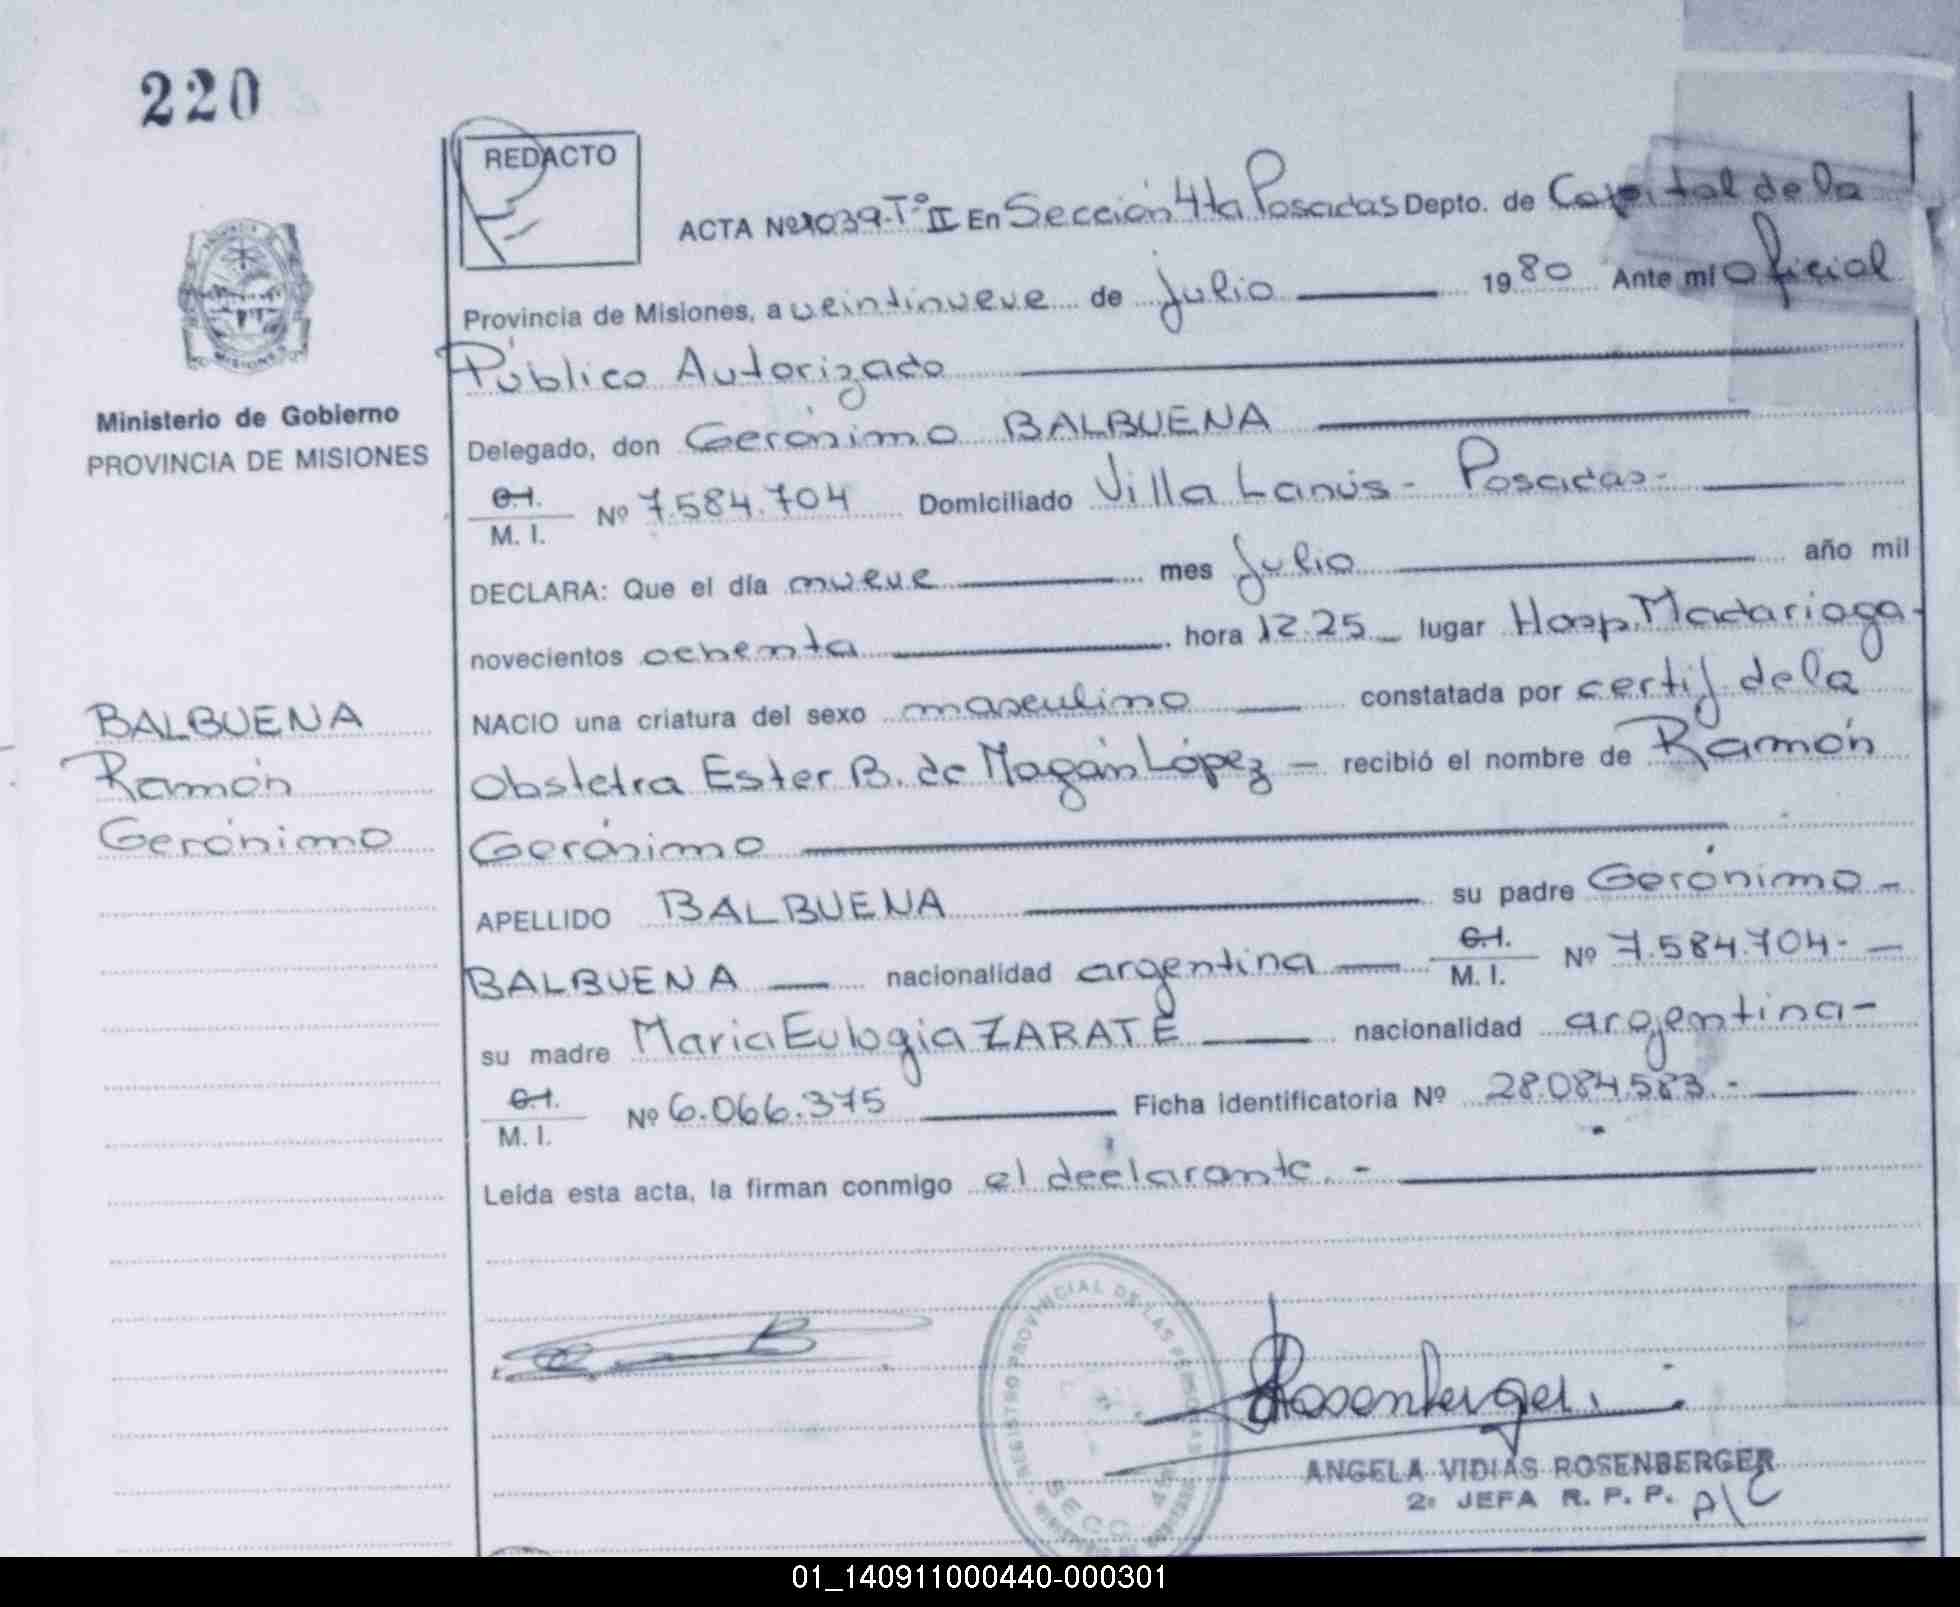 220
REDACTO
ACTA Nº 1039-Tº II En Sección 4ta Posadas Depto. de Capital de la
Provincia de Misiones, a veintinueve de Julio 1980 Ante mí Oficial
Público Autorizado
Delegado, don Gerónimo BALBUENA
C.I.
M. I. Nº 7.584.704 Domiciliado Villa Lanús - Posadas-
DECLARA: Que el día nueve mes Julio año mil
novecientos ochenta hora 12.25 lugar Hosp. Madariaga-
NACIO una criatura del sexo masculino constatada por certif. de la
Obstetra Ester B. de Magán López — recibió el nombre de Ramón
Gerónimo
APELLIDO BALBUENA su padre Gerónimo -
BALBUENA nacionalidad argentina C.I.
M. I. Nº 7.584.704.-
su madre Maria Eulogia ZARATE nacionalidad argentina-
C.I.
M. I. Nº 6.066.375 Ficha identificatoria Nº 28.084.583.-
Leída esta acta, la firman conmigo el declarante.-
MISIONES
Ministerio de Gobierno
PROVINCIA DE MISIONES
BALBUENA
Ramón
Gerónimo
REGISTRO PROVINCIAL DE LAS PERSONAS
SECC. 4ª
Rosenberger
ANGELA VIDIAS ROSENBERGER
2ª JEFA R. P. P. A/C
01_140911000440-000301